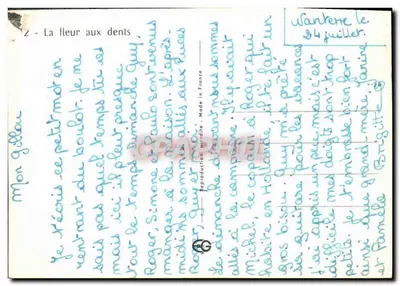 2 - La fleur aux dents
Nanterre le
24 juillet.
Mon Gillou
Je t'écris ce petit mot en
rentrant du boulot. Je ne
sais pas quel temps tu as
mais ici il pleut presque
tout le temps. Armande, Guy,
Roger, Simone et sont venus
manger à la maison. L'après
midi nous sommes allés aux Puces
Roger, Guy et moi.
Le dimanche nous sommes
allés à la campagne. Il y avait
Michel, le copain à Roger qui
habite en Hollande. Il fait un
gros bisou. Il m'a prêté
sa guitare pour les vacances
j'ai appris un peu mais c'est
difficile mes doigts sont trop
petits. Je t'embrasse bien fort
ainsi que
et Pamella. Brigitte
Reproduction interdite - Made in France